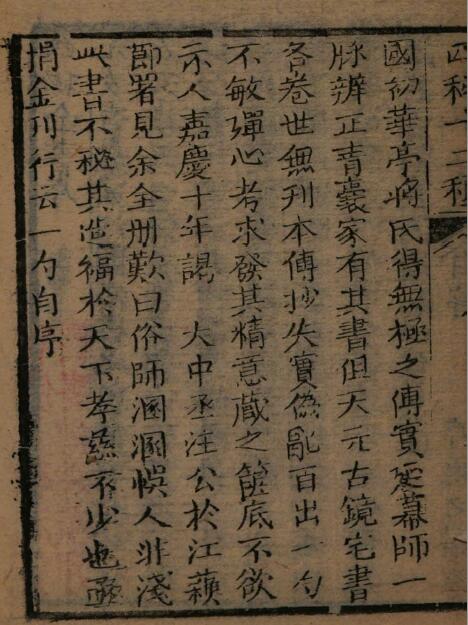 國初華亭蔣氏得無極之傳實幕師一
脉辨正青囊家有其書但天元古鏡宅書
各卷世無刋本傳抄失實偽亂百出一勺
不敏殫心考求發其精意藏之篋底不欲
示人嘉慶十年謁 大中丞汪公於江蘓
節署見余全册歎曰俗師溷溷悮人非淺
此書不秘其造福於天下孝慈不少也亟
捐金刋行云一勺自序